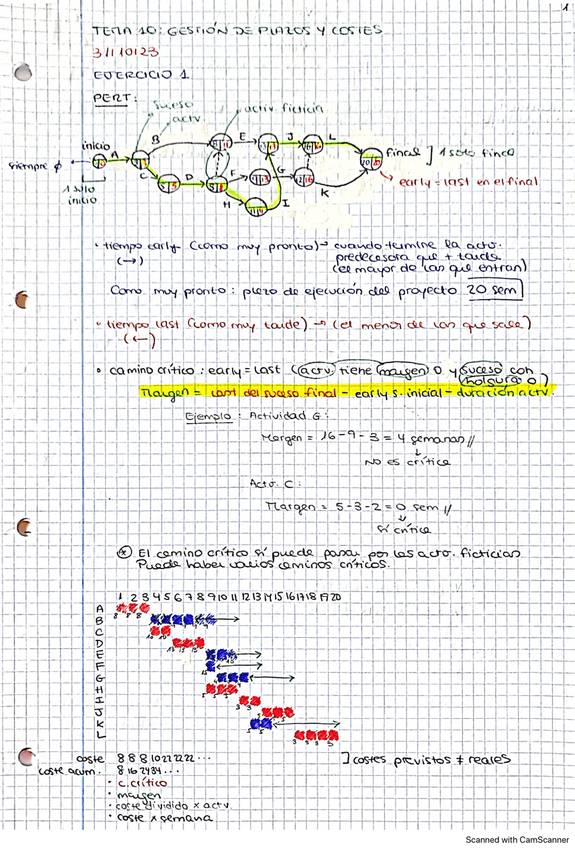 1
TEMA 10: GESTIÓN DE PLAZOS Y COSTES
31/10/23
EJERCICIO 1
PERT:
suceso
actv.
activ ficticia
inicio
siempre 0
1 solo
inicio
A
B
C
D
E
F
G
H
I
J
K
L
final ] 1 solo final
early = last en el final
· tiempo early (como muy pronto) → cuando termine la actv.
(→)
predecesora que + tarda
(el mayor de las que entran)
Como muy pronto: plazo de ejecución del proyecto 20 sem
· tiempo last (como muy tarde) → (el menor de los que sale)
(←)
· camino crítico: early = last (actv. tiene margen 0 y suceso con
holgura 0)
Margen = last del suceso final - early s. inicial - duración actv.
Ejemplo: Actividad G:
Margen = 16-9-3 = 4 semanas //
No es crítica
Actv. C:
Margen = 5-3-2 = 0 sem //
sí crítica
* El camino crítico sí puede pasar por las actv. ficticias
Puede haber varios caminos críticos.
1 2 3 4 5 6 7 8 9 10 11 12 13 14 15 16 17 18 19 20
A
B
C
D
E
F
G
H
I
J
K
L
coste 8 8 8 10 22 22 22 ...
] costes previstos ≠ reales
coste acum. 8 16 24 34 ...
· c. crítico
· margen
· coste dividido x actv.
· coste x semana
Scanned with CamScanner